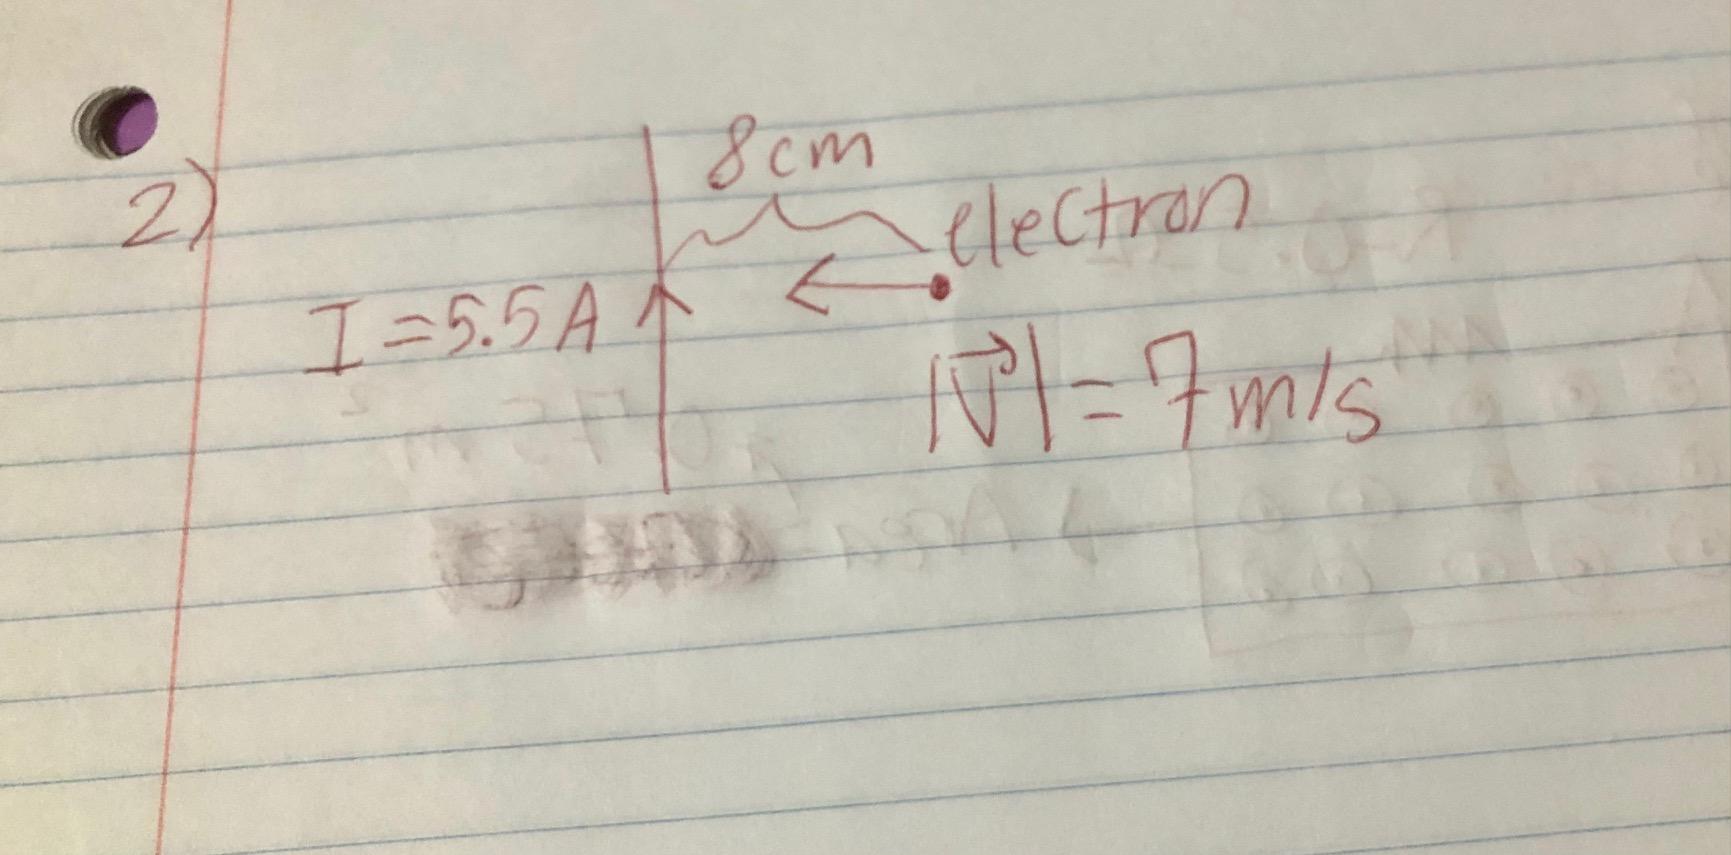 2)
8cm
electron
I = 5.5A
|V⃗| = 7 m/s